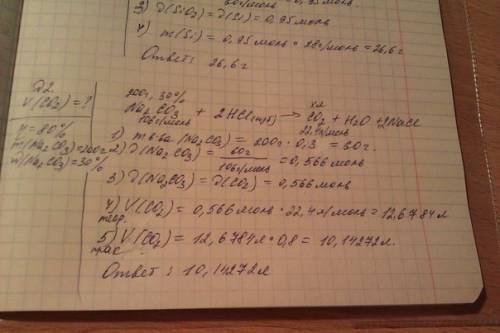 3) ν(SiO2) = ν(Si) = 0,95 моль
4) m(Si) = 0,95 моль · 28 г/моль = 26,6 г
Ответ: 26,6 г
V(CO2) = ?
η = 80%
m(Na2CO3) = 200г
(Na2CO3) = 30%
200г, 30% хл
Na2CO3 + 2HCl(изб) → CO2 + H2O + 2NaCl
106г/моль 22,4л/моль
1) m в-ва (Na2CO3) = 200г · 0,3 = 60г.
2) ν(Na2CO3) = 60г / 106г/моль = 0,566 моль
3) ν(Na2CO3) = ν(CO2) = 0,566 моль
4) V(CO2) теор. = 0,566 моль · 22,4 л/моль = 12,6784 л
5) V(CO2) прак = 12,6784л · 0,8 = 10,14272л.
Ответ: 10,14272л